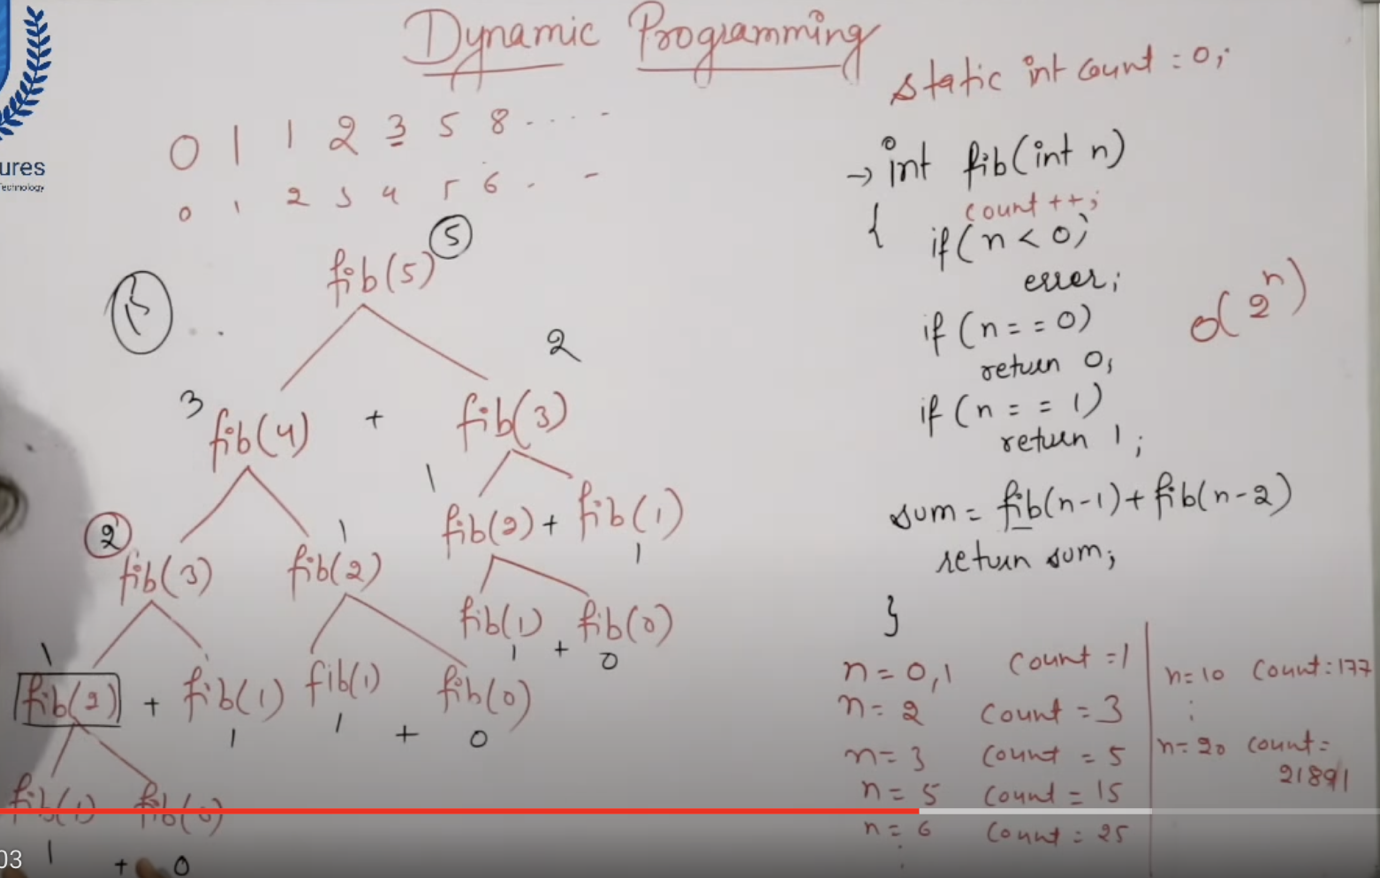 Dynamic Programming
ures
Technology
0 1 1 2 3 5 8 ....
0 1 2 3 4 5 6 . -
fib(5) 5
3 fib(4) + fib(3) 2
2 fib(3) fib(2) 1
1 fib(2) + fib(1) 1
fib(1) + fib(0)
1 0
1 fib(2) + fib(1) fib(1) + fib(0)
1 1 0
fib(1) fib(0)
1 + 0
static int count = 0;
→ int fib(int n)
{
count++;
if(n < 0)
error;
if(n == 0)
return 0;
if(n == 1)
return 1;
sum = fib(n-1) + fib(n-2)
return sum;
}
O(2^n)
n = 0,1 count = 1
n = 2 count = 3
n = 3 count = 5
n = 5 count = 15
n = 6 count = 25
n = 10 count: 177
:
n = 20 count =
21891
03